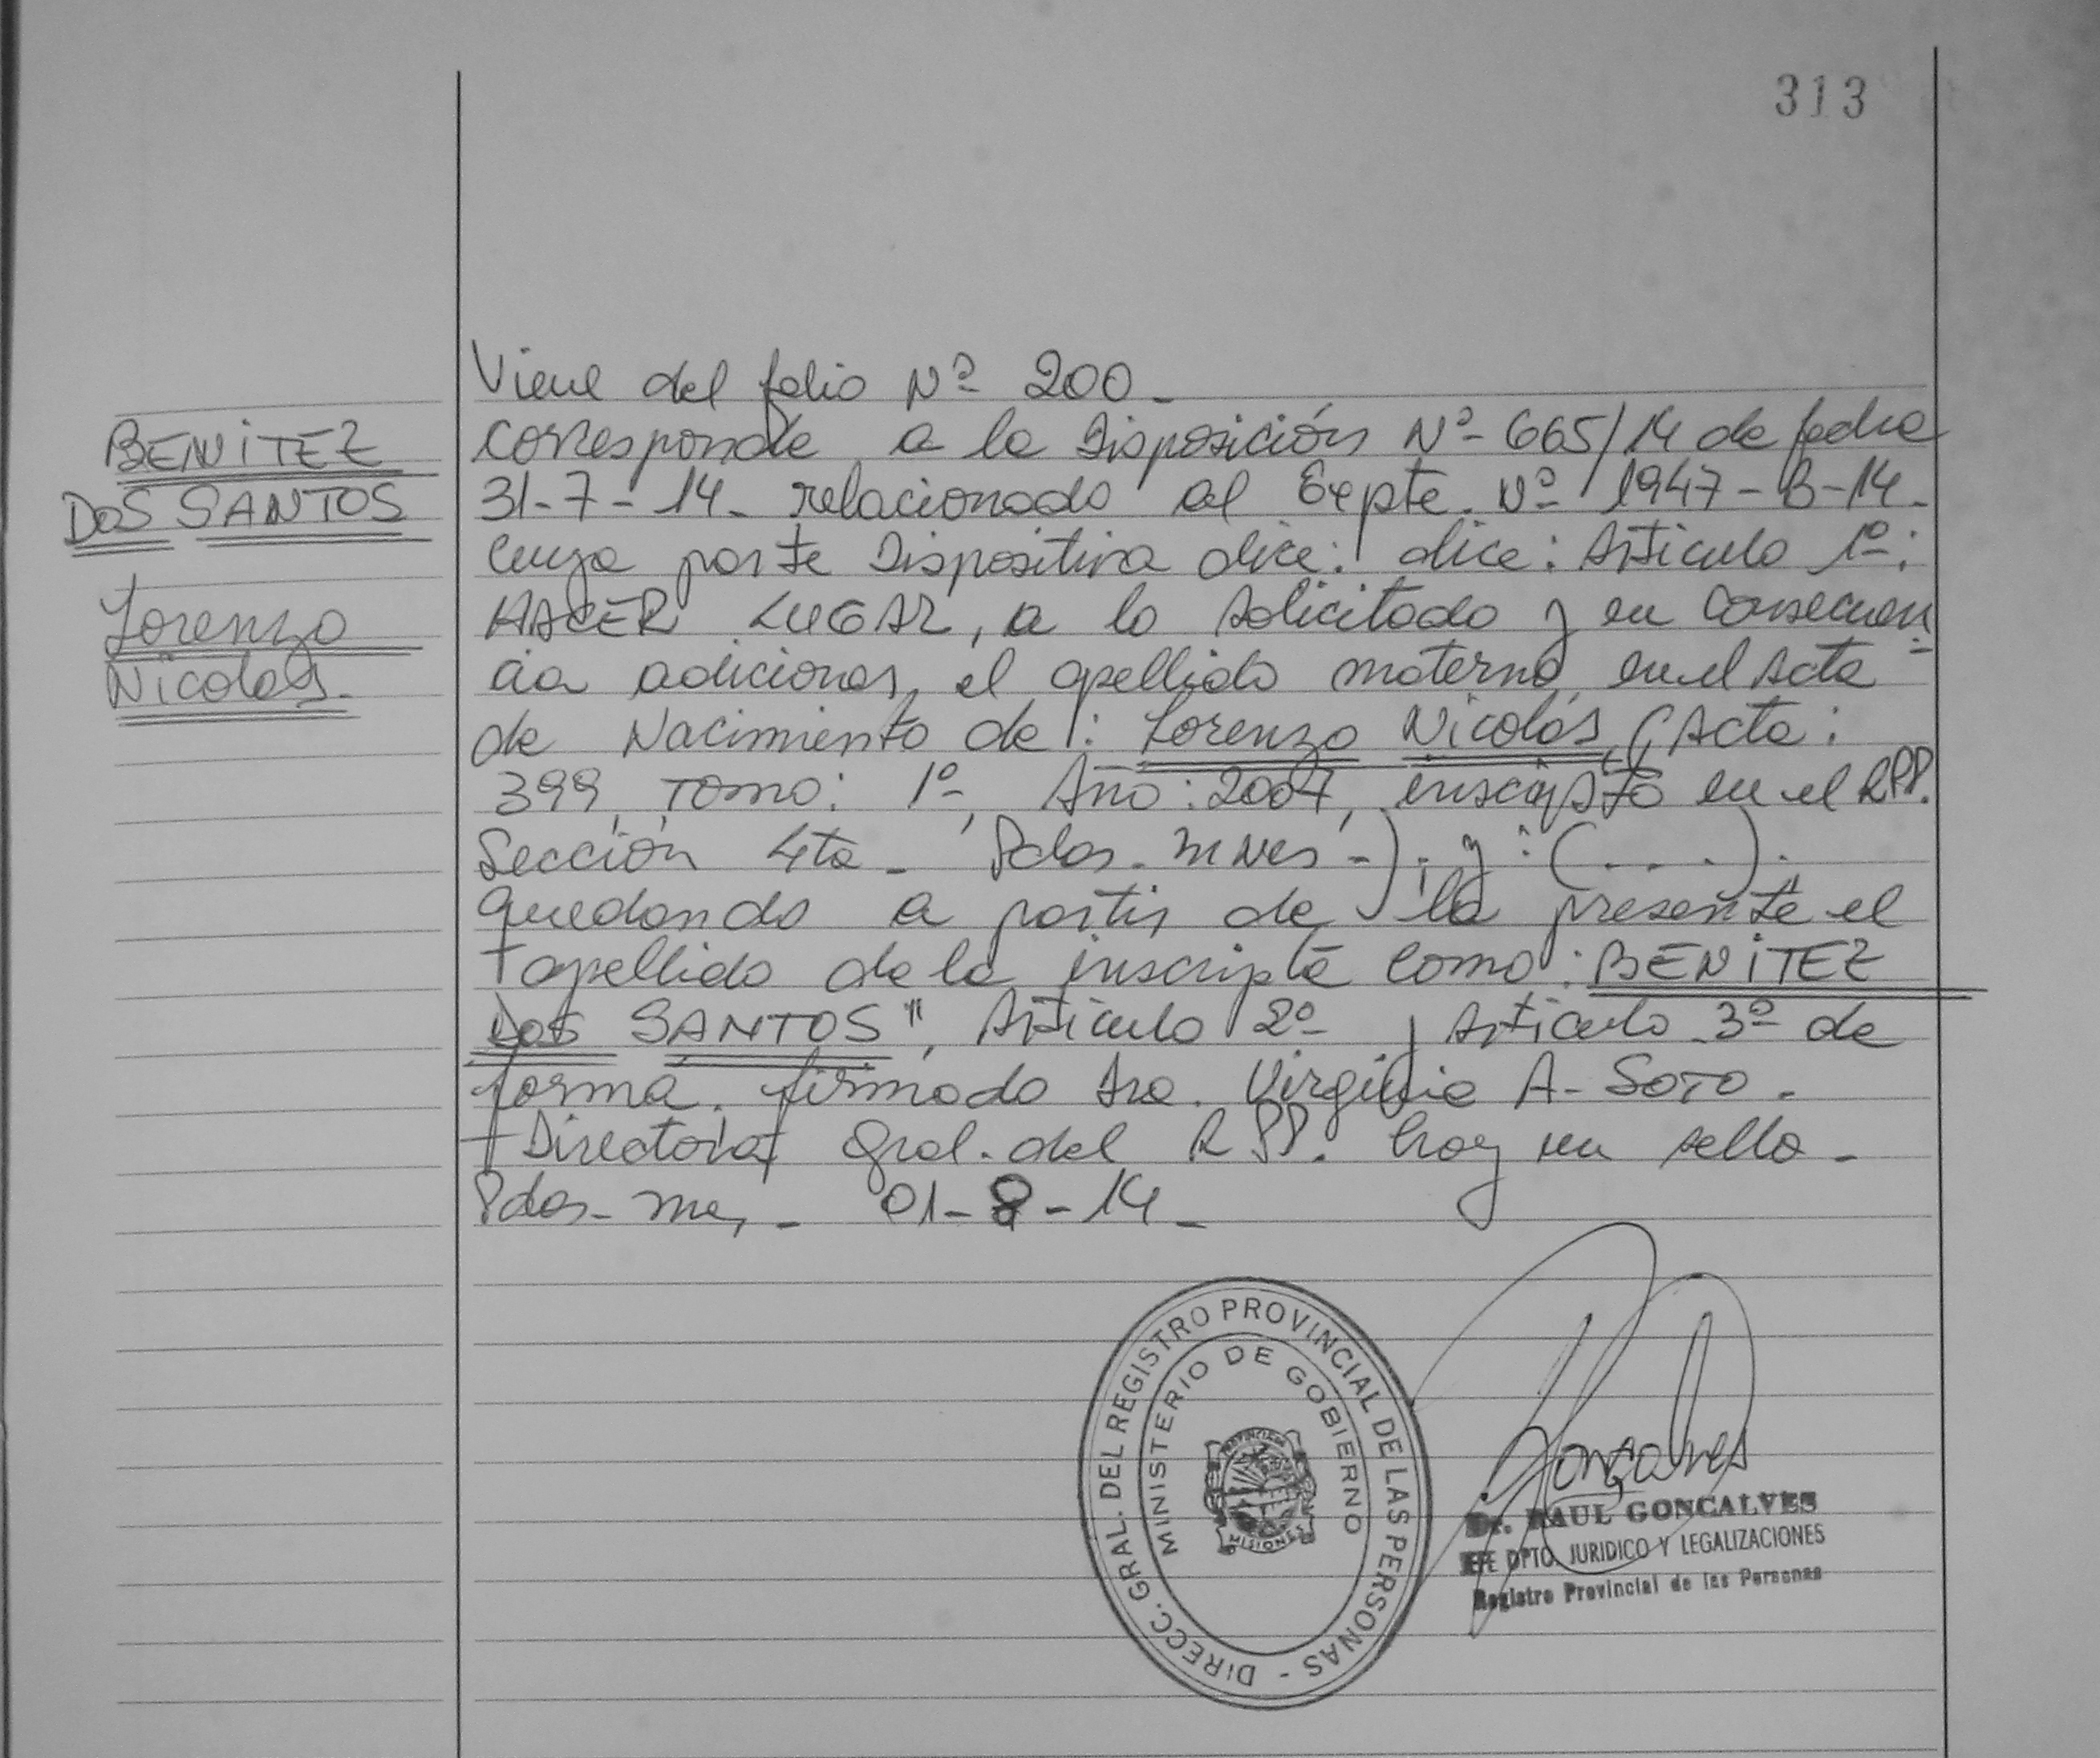 313
BENITEZ
DOS SANTOS
Lorenzo
Nicolás.
Viene del folio Nº 200 -
Corresponde a la Disposición Nº 665/14 de fecha
31-7-14- relacionado al Expte. Nº 1947-B-14-
Cuya parte Dispositiva dice: dice: Artículo 1º:
HACER LUGAR, a lo solicitado y en Consecuen
cia adicionar, el apellido materno, en el Acta
de Nacimiento de: Lorenzo Nicolás, (Acta:
399, Tomo: 1º, Año: 2007, inscripto en el RPP.
Sección 4ta - Pdas. Mnes-). y: (....).
quedando a partir de la presente el
apellido de la inscripta como: BENITEZ
DOS SANTOS", Artículo 2º y Artículo 3º de
forma. firmado Dra. Virginia A. SOTO -
Directora Gral. del RPP. hay un sello -
Pdas- Mnes, - 01-8-14-
DIRECC. GRAL. DEL REGISTRO PROVINCIAL DE LAS PERSONAS -
MINISTERIO DE GOBIERNO
PROVINCIA DE
MISIONES
Goncalves
Dr. RAUL GONCALVES
JEFE DPTO. JURIDICO Y LEGALIZACIONES
Registro Provincial de las Personas